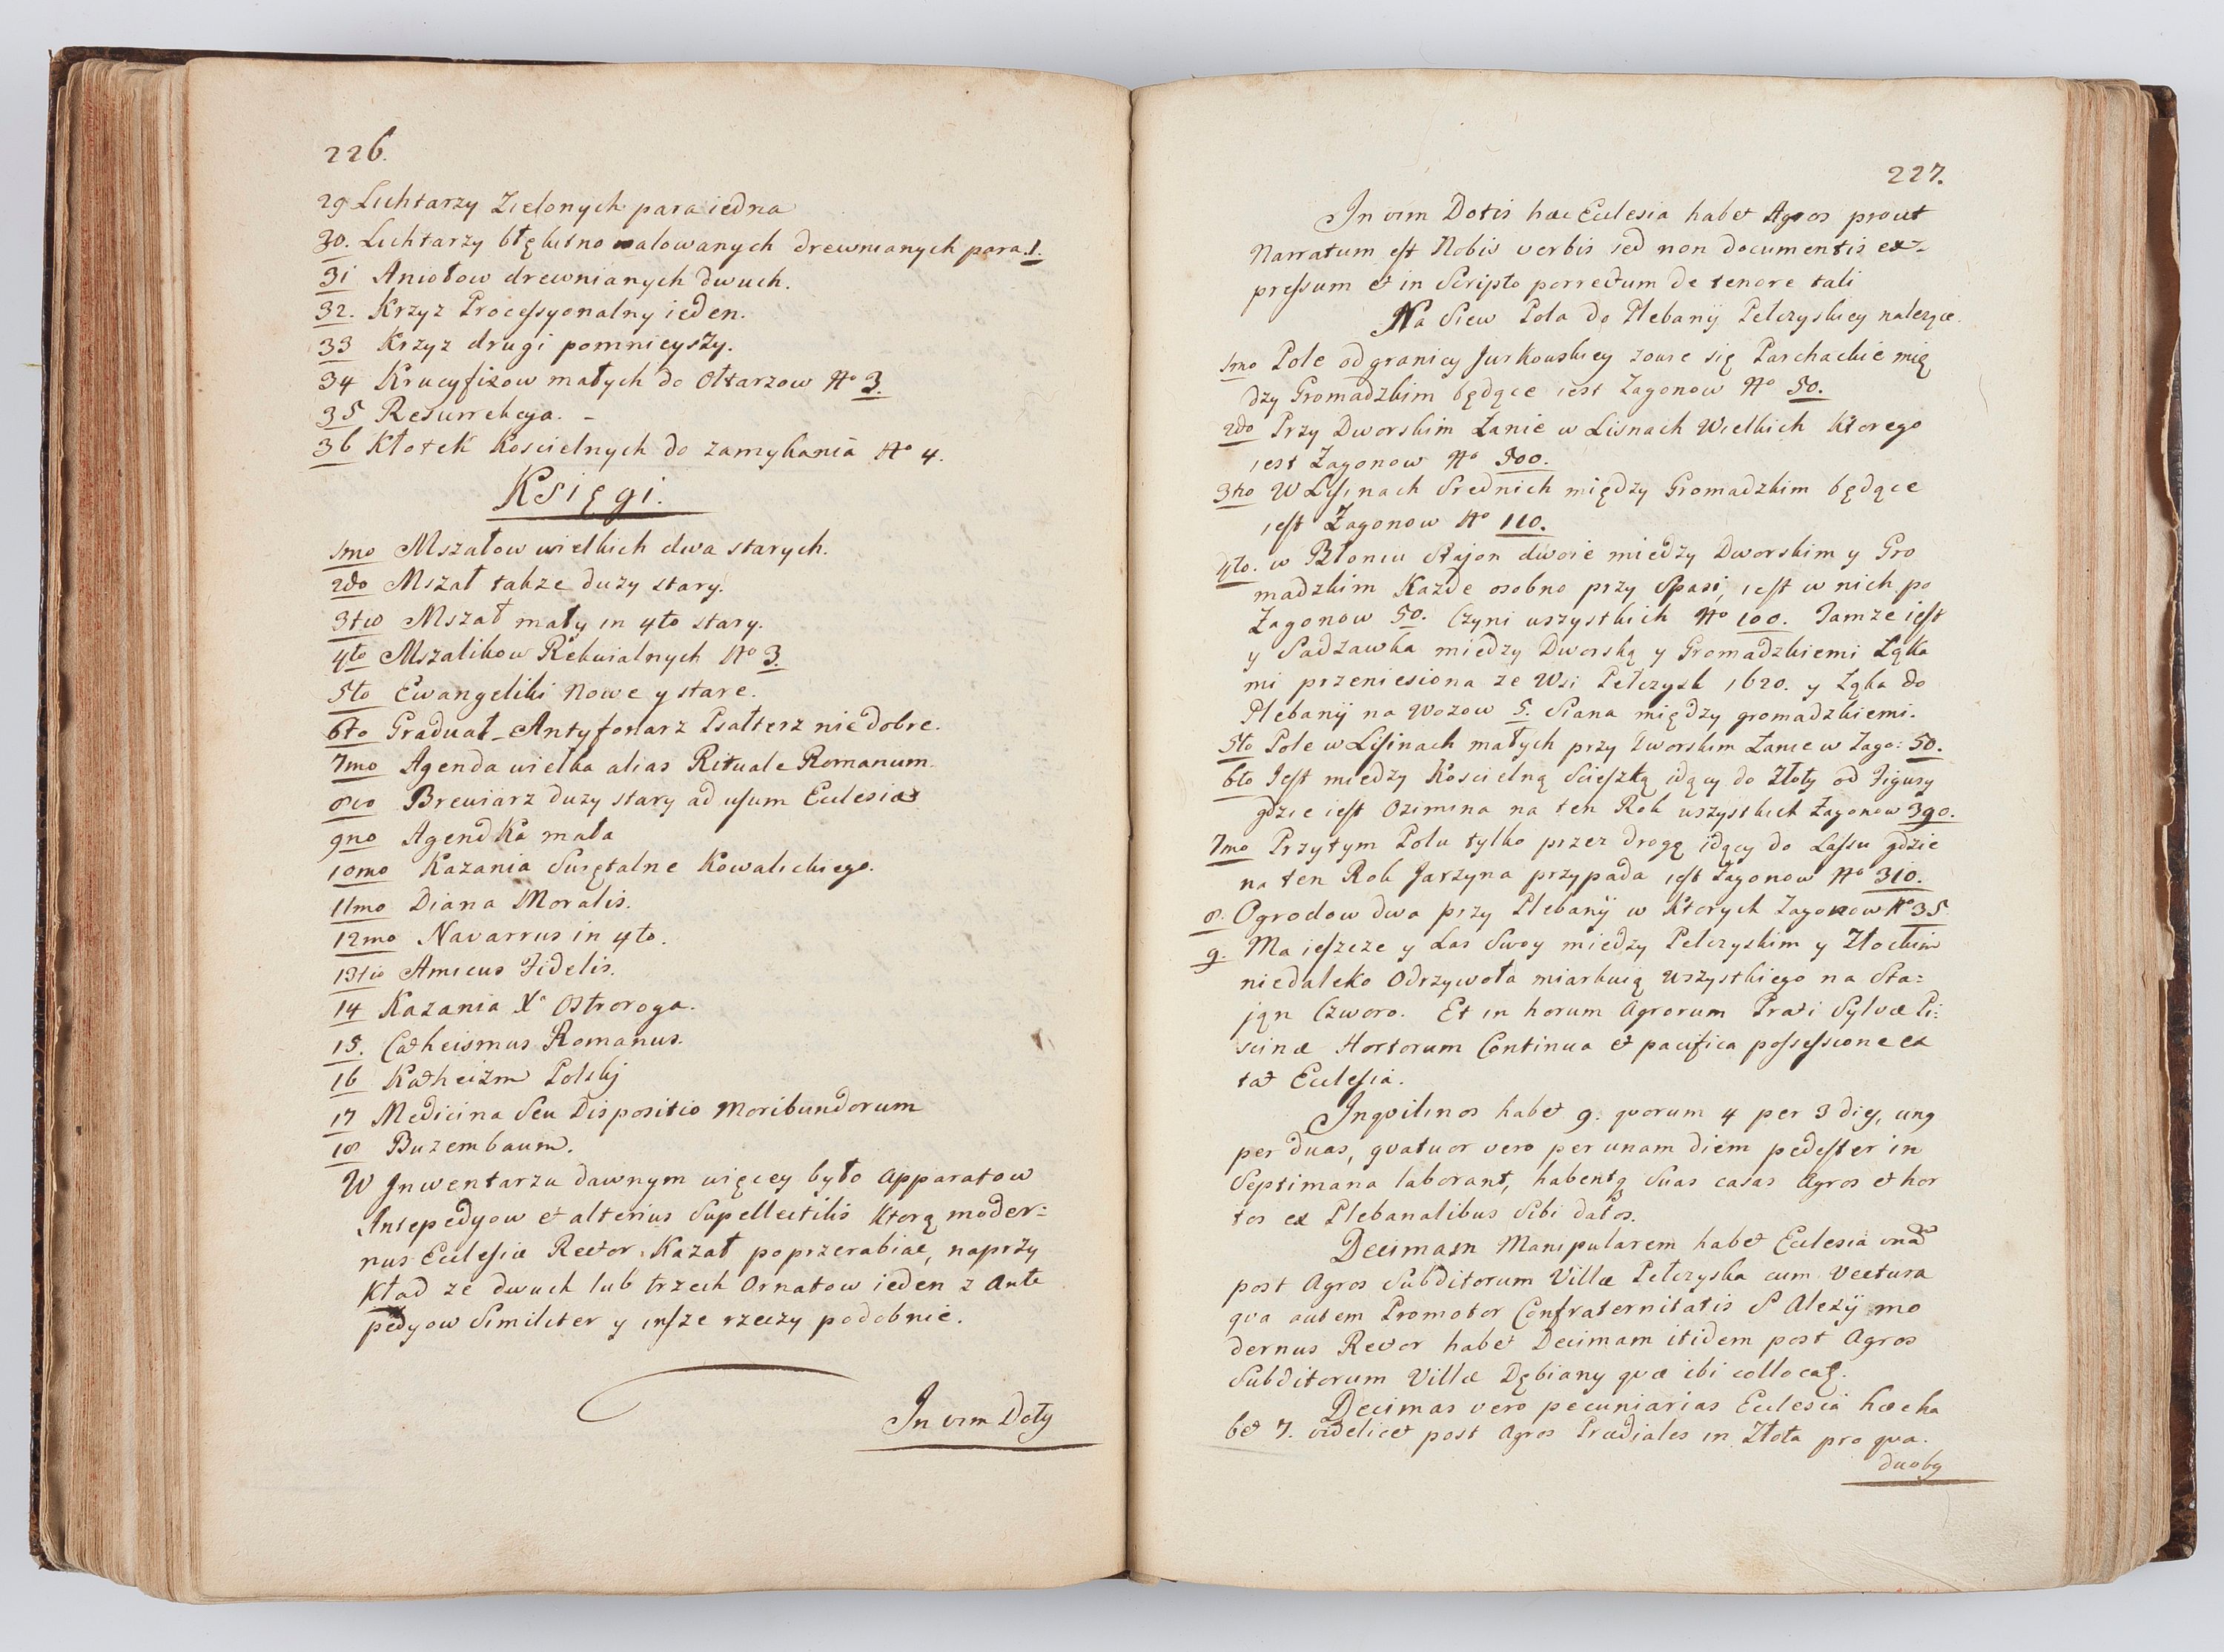 226.
29 Lichtarzy Zielonych para iedna
30. Lichtarzy błękitno malowanych drewnianych para. 1.
31 Aniołow drewnianych dwuch.
32. Krzyz Processyonalny ieden.
33 Krzyz drugi pomnieyszy.
34 Krucyfixow małych do Ołtarzow No 3.
35 Resurrekcya. -
36 Kłotek Koscielnych do zamykania No 4.
Księgi.
1mo Mszałow wielkich dwa starych.
2do Mszał takze duzy stary.
3tio Mszał mały in 4to stary.
4to Mszalikow Rekwialnych No 3.
5to Ewangeliki Nowe y stare.
6to Graduał_ Antyfonarz Psałterz nie dobre.
7mo Agenda wielka alias Rituale Romanum.
8vo Brewiarz duzy stary ad usum Ecclesiæ
9no Agendka mała
10mo Kazania Swiętalne Kowalickiego.
11mo Diana Moralis.
12mo Navarrus in 4to.
13tio Amicus Fidelis.
14 Kazania Xa Ostroroga.
15. Catheismus Romanus.
16 Katheizm Polski
17 Medicina Seu Dispositio Moribundorum
18 Buzembaum.
W Inwentarzu dawnym więcey było Apparatow
Antepedyow et alterius Supellectilis Ktorą moder=
nus Ecclesiæ Rector Kazał poprzerabiać, naprzy
Kład ze dwuch lub trzech Ornatow ieden z Ante
pedyow Similiter y insze rzeczy podobnie.
In vim Doty
227.
In vim Dotis hæc Ecclesia habet Agros prout
Narratum est Nobis verbis sed non documentis ex=
pressum et in Scripto porrectum de tenore tali
Na Siew Pola do Plebanij Pełczyskiey nalezące.
1mo Pole od granicy Jurkowskiey zowie się Parchackie mię
dzy Gromadzkim będące iest Zagonow No 50.
2do Przy Dworskim Łanie w Lisnach Wielkich Ktorego
iest Zagonow No 500.
3tio W Lisinach Srednich między Gromadzkim będące
iest Zagonow No 110.
4to. w Błoniu Stajon dwoie miedzy Dworskim y Gro
madzkim Kazde osobno przy Spasi, iest w nich po
Zagonow 50. Czyni wszystkich No 100. Tamze iest
y Sadzawka miedzy Dworską y Gromadzkiemi Łąka
mi przeniesiona ze Wsi Pełczysk 1620. y Łąka do
Plebanij na Wozow 5. Siana między gromadzkiemi.
5to Pole w Lisinach małych przy Dworskim Łanie w Zago: 50.
6to Jest miedzy Koscielną Scieszką idący do Złoty od Figury
gdzie iest Ozimina na ten Rok wszystkich Zagonow 390.
7mo Przytym Polu tylko przez drogę idący do Lassu gdzie
na ten Rok Jarzyna przypada iest Zagonow No 310.
8. Ogrodow dwa przy Plebanij w Ktorych Zagonow No 35
9. Ma ieszcze y Las Swoy miedzy Pełczyskim y Złockim
niedaleko Odrzywoła miarkuią wszystkiego na Sta=
jąn Czworo. Et in horum Agrorum Prati Sylvæ Pi=
scinæ Hortorum Continua et pacifica possessione ex
tat Ecclesia.
Inqvilinos habet 9. qvorum 4 per 3 dies, unq
per duas, qvatuor vero per unam diem pedester in
Septimana laborant, habentq Suas casas Agros et hor
tos ex Plebanalibus Sibi datos.
Decimam Manipularem habet Ecclesia unam
post Agros Subditorum Villæ Pełczyska cum Vectura
qva autem Promotor Confraternitatis S Alexij mo
dernus Rector habet Decimam itidem post Agros
Subditorum Villæ Dębiany qvæ ibi collocaę.
Decimas vero pecuniarias Ecclesia hæc ha
bet 7. videlicet post Agros Prædiales in Złota pro qva.
duobq